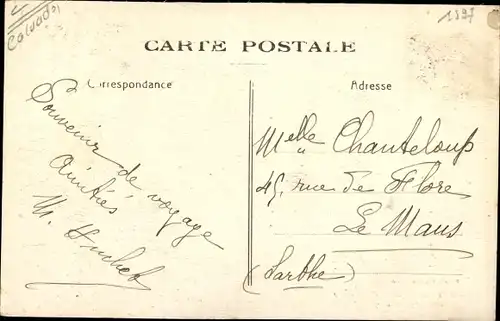 Calvados
1897
CARTE POSTALE
Correspondance
Adresse
Souvenir
de voyage
Amitiés
M. Huchet
Melle Chanteloup
45, rue de Flore
Le Mans
(Sarthe)